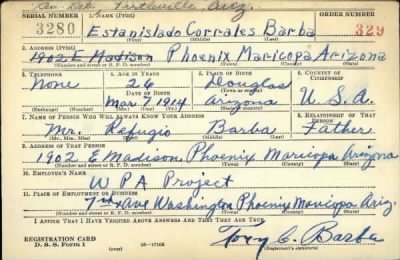 Peartsville, Ariz.
SERIAL NUMBER 1. NAME (Print) ORDER NUMBER
3280 Estanislado Corrales Barba 329
(First) (Middle) (Last)
2. ADDRESS (Print)
1902 E Madison Phoenix Maricopa Arizona
(Number and street or R. F. D. number) (Town) (County) (State)
3. TELEPHONE 4. AGE IN YEARS 5. PLACE OF BIRTH 6. COUNTRY OF CITIZENSHIP
None 26 Douglas
DATE OF BIRTH (Town or county)
Mar 7 1914 Arizona U. S. A.
(Exchange) (Number) (Mo.) (Day) (Yr.) (State or country)
7. NAME OF PERSON WHO WILL ALWAYS KNOW YOUR ADDRESS 8. RELATIONSHIP OF THAT PERSON
Mr. Refugio Barba Father
(Mr., Mrs., Miss) (First) (Middle) (Last)
9. ADDRESS OF THAT PERSON
1902 E Madison Phoenix Maricopa Arizona
(Number and street or R. F. D. number) (Town) (County) (State)
10. EMPLOYER'S NAME
WPA Project
11. PLACE OF EMPLOYMENT OR BUSINESS
7th Ave Washington Phoenix Maricopa Ariz.
(Number and street or R. F. D. number) (Town) (County) (State)
I AFFIRM THAT I HAVE VERIFIED ABOVE ANSWERS AND THAT THEY ARE TRUE.
REGISTRATION CARD
D. S. S. Form 1 16—17105 Tony C. Barba
(Registrant's signature)